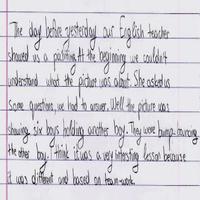 The day before yesterday our English teacher
showed us a painting. At the beginning we couldn't
understand what the picture was about. She asked us
some questions, we had to answer. Well the picture was
showing six boys holding another boy. They were bump-bouncing
the other boy. I think it was a very interesting lesson because
it was different and based on team-work.